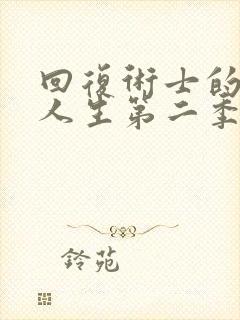 回復術士的
人生第二季
鈴苑